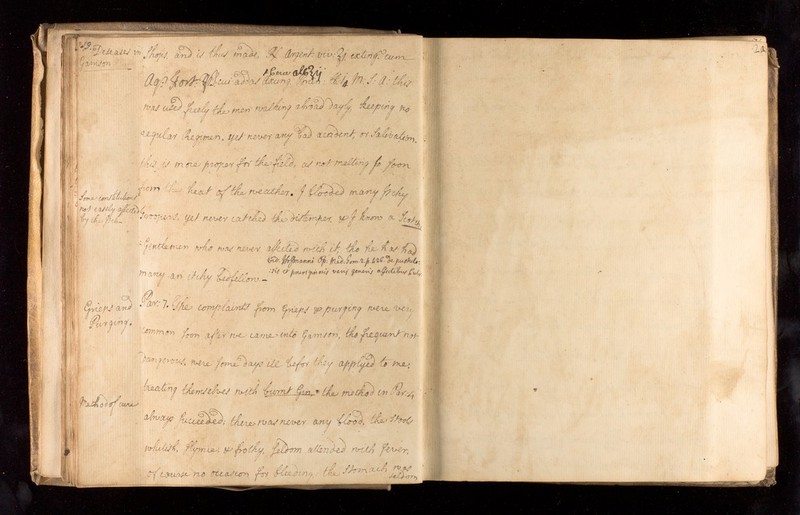 Diseases in
Garison
Shops, and is thus made. ℞ Argent: viv: ℥j exting: cum
Aq: fort:
M. S. A. this
was used freely the men walking abroad dayly, keeping no
regular Regimen, yet never any bad accident, or Salivation.
this is more proper for the field, as not melting so soon
from the heat of the weather. I blooded many Itchy
Some constitutions
not easily affected
by the Itch
troopers, yet never catched the distemper, & I know a Scotch
Gentlemen who was never affected with it, tho he has had
vid: Hoffmanni Op: Med: Tom: 3. p 426 de pustulo
many an itchy Bedfellow —
Gripes and
Purging.
Par: 7. The complaints from Gripes & purging were very
common soon after we came into Garison, tho frequent not
dangerous, were some days ill befor they applyed to me;
treating themselves with burnt Gin, the method in Par: 4
Method of cure
always succeeded; there was never any blood, the Stools
whitish, slymie, & frothy, seldom attended with fever,
of course no occasion for bleeding, the Stomach was
seldom